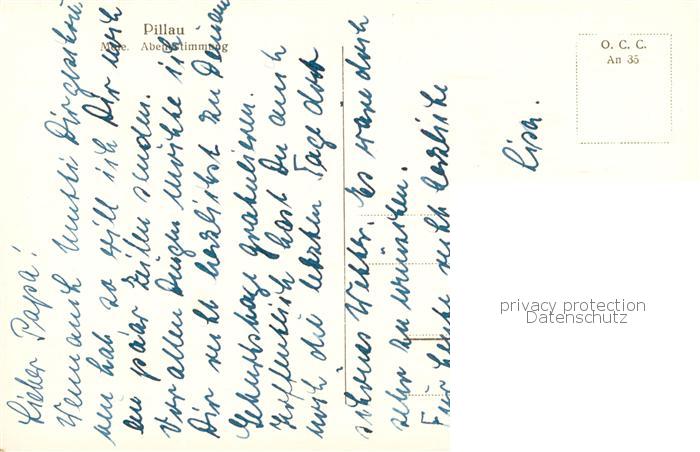 Pillau
Mole. Abendstimmung
O. C. C.
An 35
Lieber Papa!
Wenn auch Mutti Dir geschrie
ben hat so will ich Dir noch
ein paar Zeilen senden.
Vor allen Dingen möchte ich
Dir recht herzlichst zu Deinem
Geburtstage gratulieren.
Hoffentlich hast Du auch
noch die letzten Tage dort
schönes Wetter. Es wäre doch
sehr zu wünschen.
Für heute recht herzliche
Lisa.
privacy protection
Datenschutz